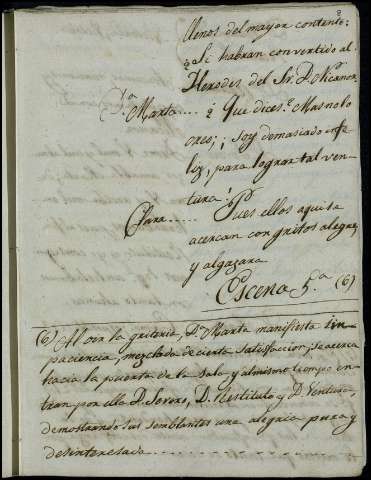 2
llenos del mayor contento:
¿Si habran convertido al
Herodes del Sr. D. Nicanor
D.ª Marta.... ¿Que dices? Mas no lo
creo; ¡soy demasiado infe-
liz, para lograr tal ven-
tura!
Clara..... Pues ellos aqui se
acercan con gritos alegres,
y algazara
Escena 5.ª (6)
(6) Al oir la griteria, D.ª Marta manifiesta im-
paciencia, mezclada de cierta satisfaccion; se acerca
hacia la puerta de la sala y al mismo tiempo en-
tran por ella D. Severo, D. Restituto y D. Ventura,
demostrando sus semblantes una alegria pura y
desinteresada